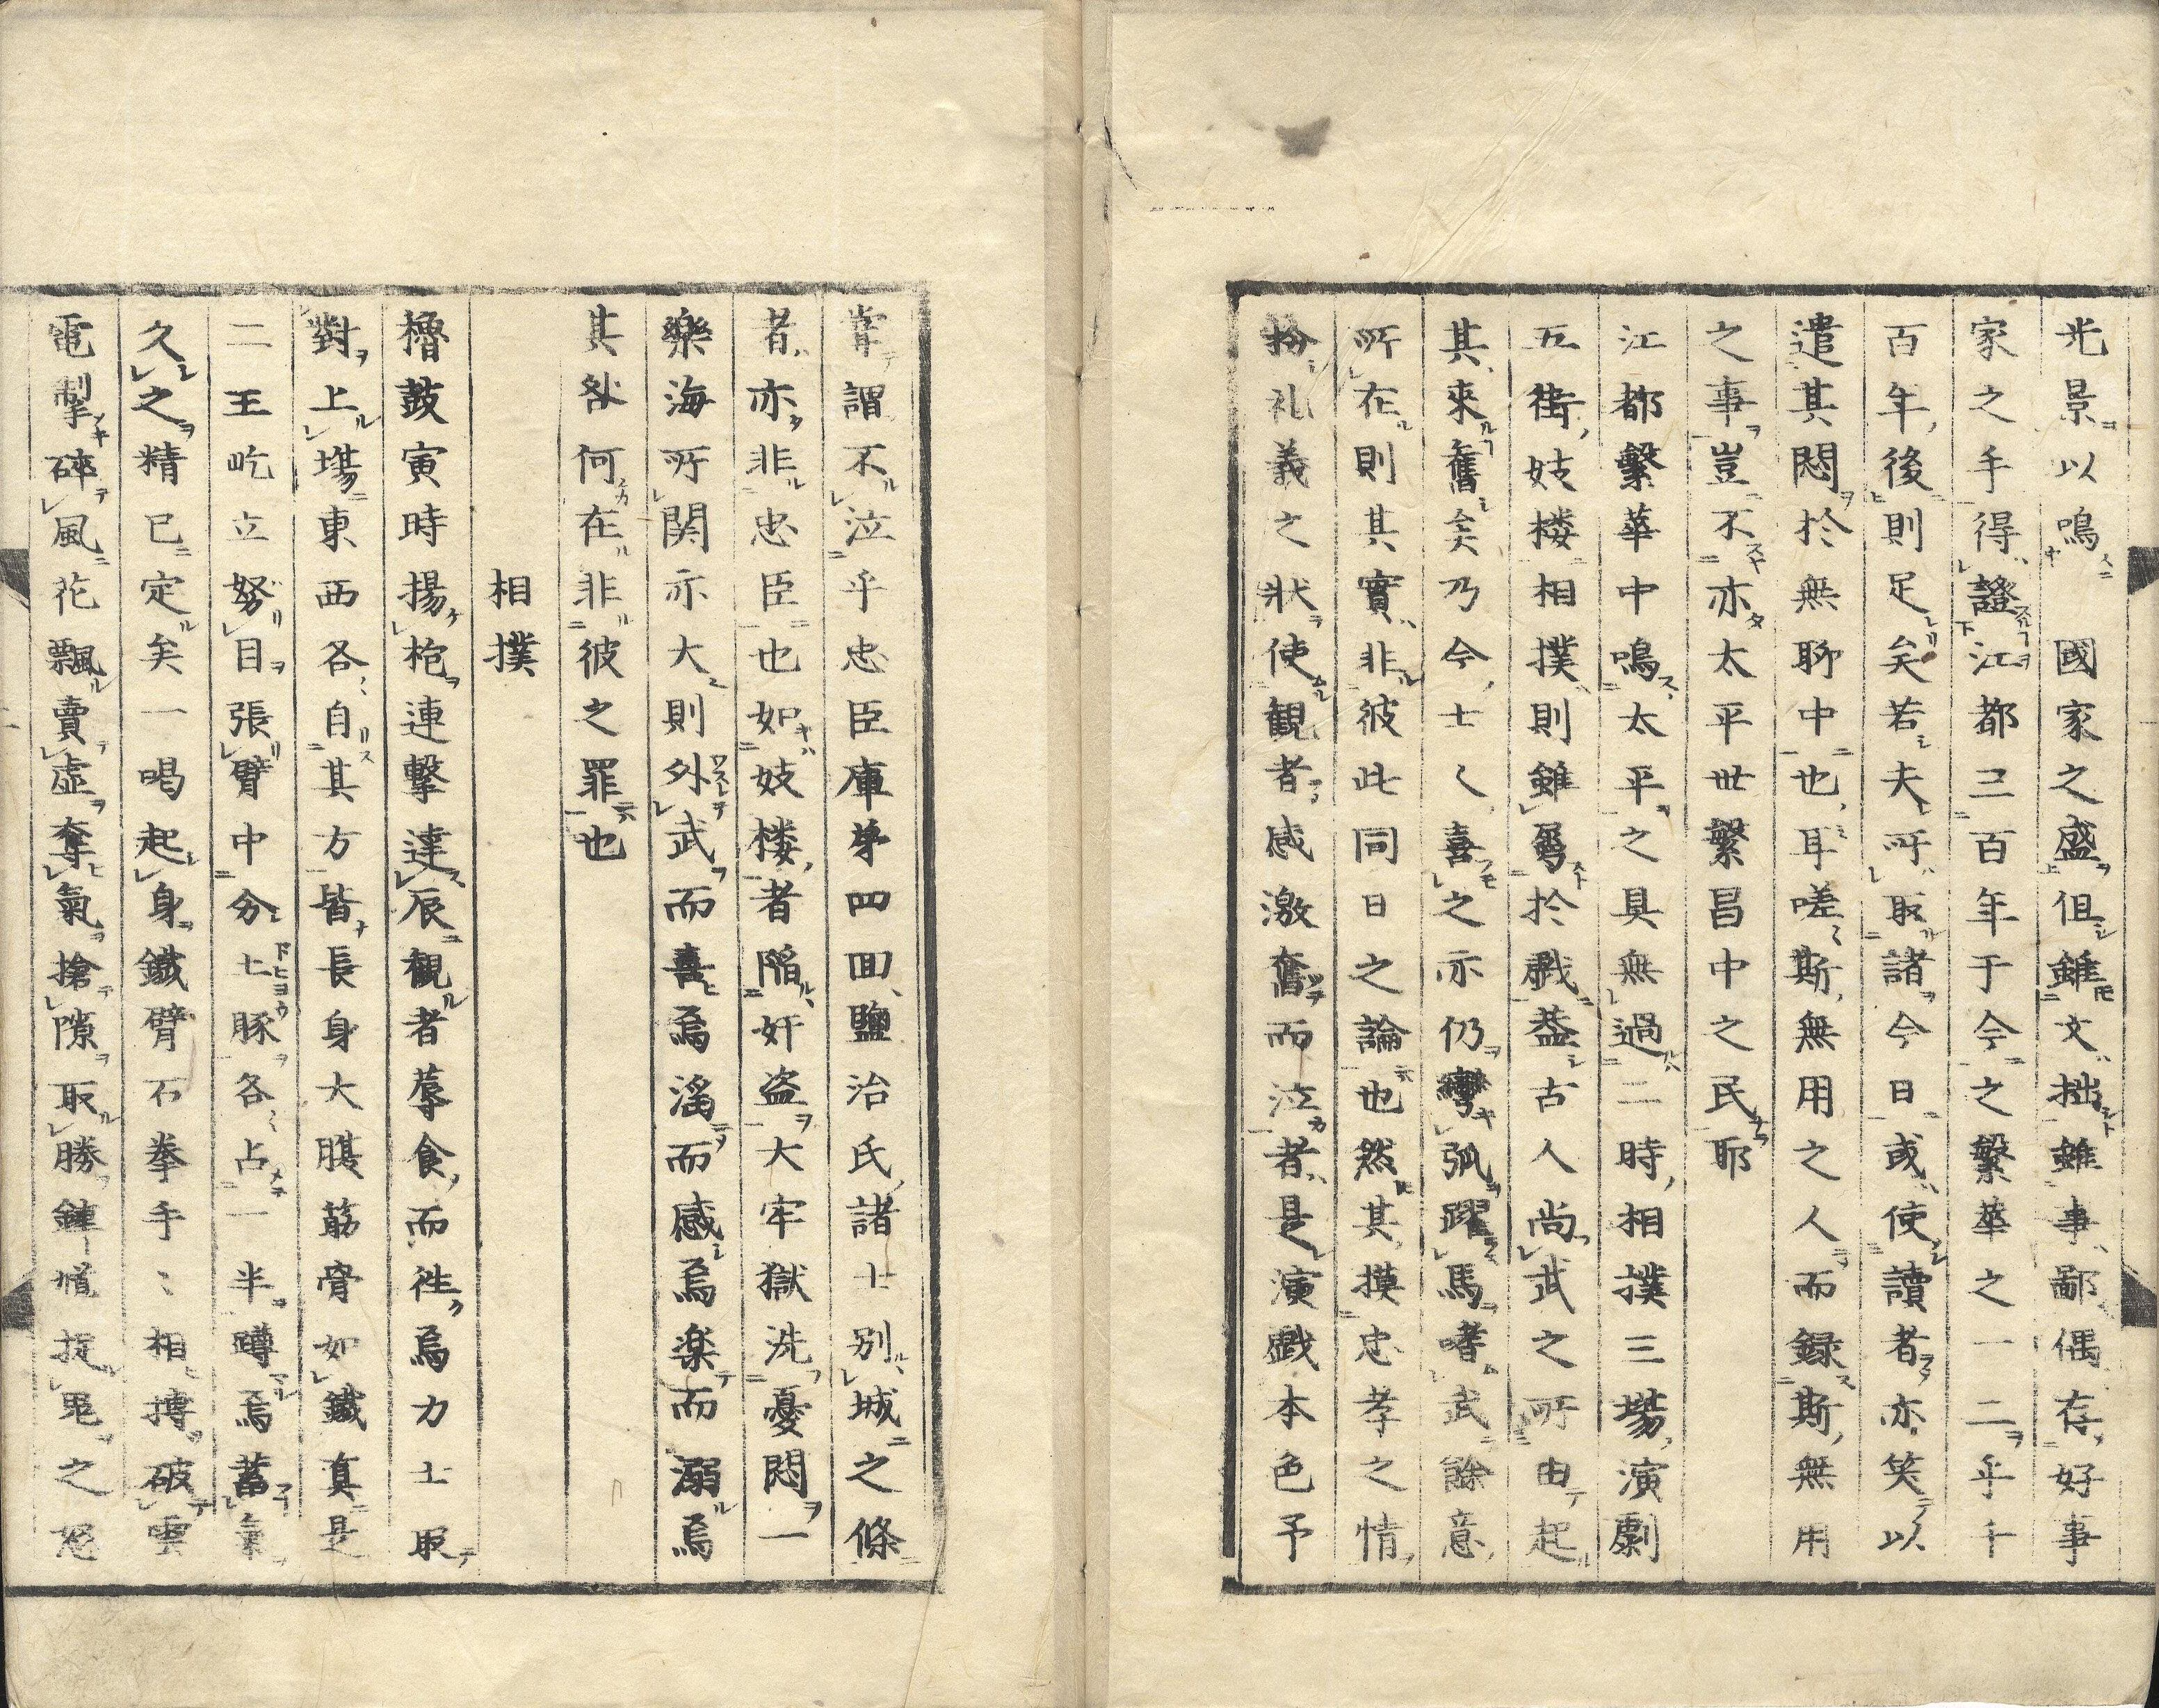 光景以鳴　國家之盛但雖文拙雖事鄙偶存好事
家之手得證江都三百年于今之繁華之一二乎千
百年後則足矣若夫所取諸今日或使讀者亦笑以
遣其悶於無聊中也耳嗟斯無用之人而録斯無用
之事豈不亦太平世繁昌中之民耶
江都繫華中鳴太平之具無過二時相撲三場演劇
五街妓楼相撲則雖戲益古人尚武之所由起
其來舊矣乃今士〻喜之亦仍彎弧躍馬嗜武餘意
所在則其實非彼此同日之論也然其摸忠孝之情
扮礼義之狀使觀者感激奮而泣者是演戯本色予
嘗謂不泣乎忠臣庫苐四回鹽治氏諸士別城之條
者亦非忠臣也如妓楼者陥奸盗大牢獄洗憂悶一
樂海所関亦大則外武而喜焉滛而感焉楽而溺焉
其咎何在非彼之罪也
相撲
櫓鼓寅時揚枹連撃達辰観者蓐食而徃焉力士取
對上場東西各自其方皆長身大腹筋骨如鐵真是
二王屹立努目張臂中分土豚各占一半蹲焉蓄氣
久之精已定矣一喝起身鐵臂石拳手〻相搏破雲
電掣碎風花飄賣虚奪氣搶隙取勝鍾馗捉鬼之怒